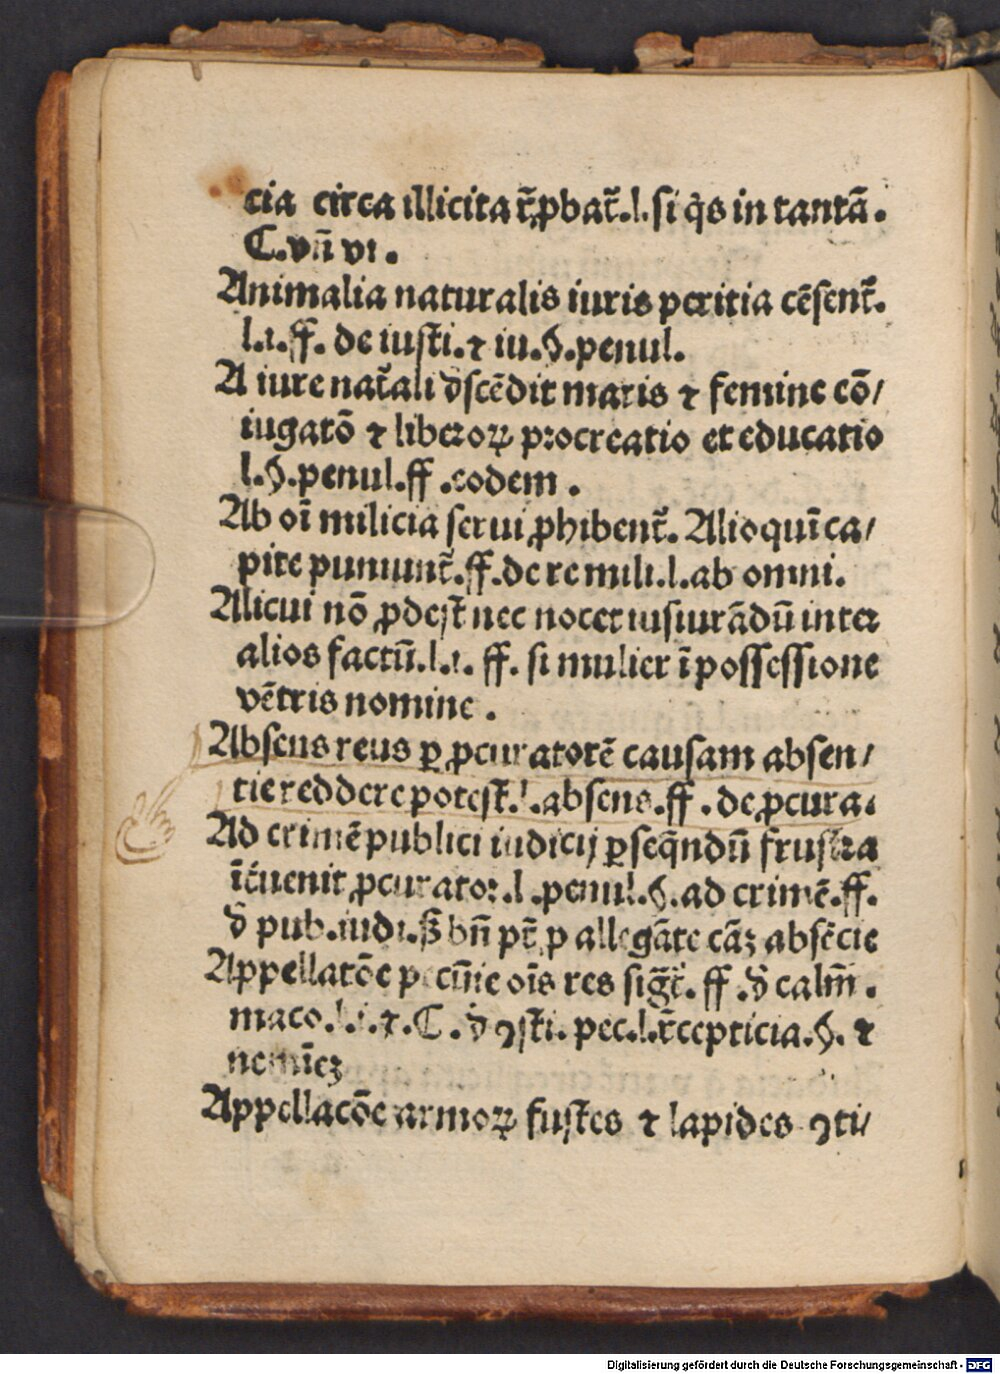 cia circa illicita t̃ꝓbat̃.l.si q̇s in tantã.
C.vñ vi.
Animalia naturalis iuris peritia cẽsent̃.
l.i.ff. de iusti.⁊ iu.§.penul.
A iure nat̃ali dꝰscẽdit maris ⁊ femine cõ/
iugatõ ⁊ liberoꝝ procreatio et educatio
l.§.penul.ff.eodem.
Ab oĩ milicia serui ꝓhibent̃. Alioquĩ ca/
pite puniunt̃.ff.de re mili.l.ab omni.
Alicui nõ ꝓdest nec nocet iusiurãdũ inter
alios factũ.l.i. ff. si mulier ĩ possessione
vẽtris nomine.
Absens reus ꝑ ꝓcuratorẽ causam absen/
tie reddere potest.l.absens.ff.de ꝓcura.
Ad crimẽ publici iudicij ꝑseq̃ndũ frustra
ĩt̃uenit ꝓcurator.l.penul.§.ad crimẽ.ff.
đ pub.iudi.ẞ bñ pt̃ ꝑ allegãre cãꝫ absẽcie
Appellatõe pecũie oĩs res sig̃t̃.ff.đ calm̃.
maco.l.i.⁊.C.đ ꝯsti. pec.l.r̃cepticia.§. ⁊
neminẽꝫ
Appellacõe armoꝝ fustes ⁊ lapides ꝯti/
Digitalisierung gefördert durch die Deutsche Forschungsgemeinschaft - DFG